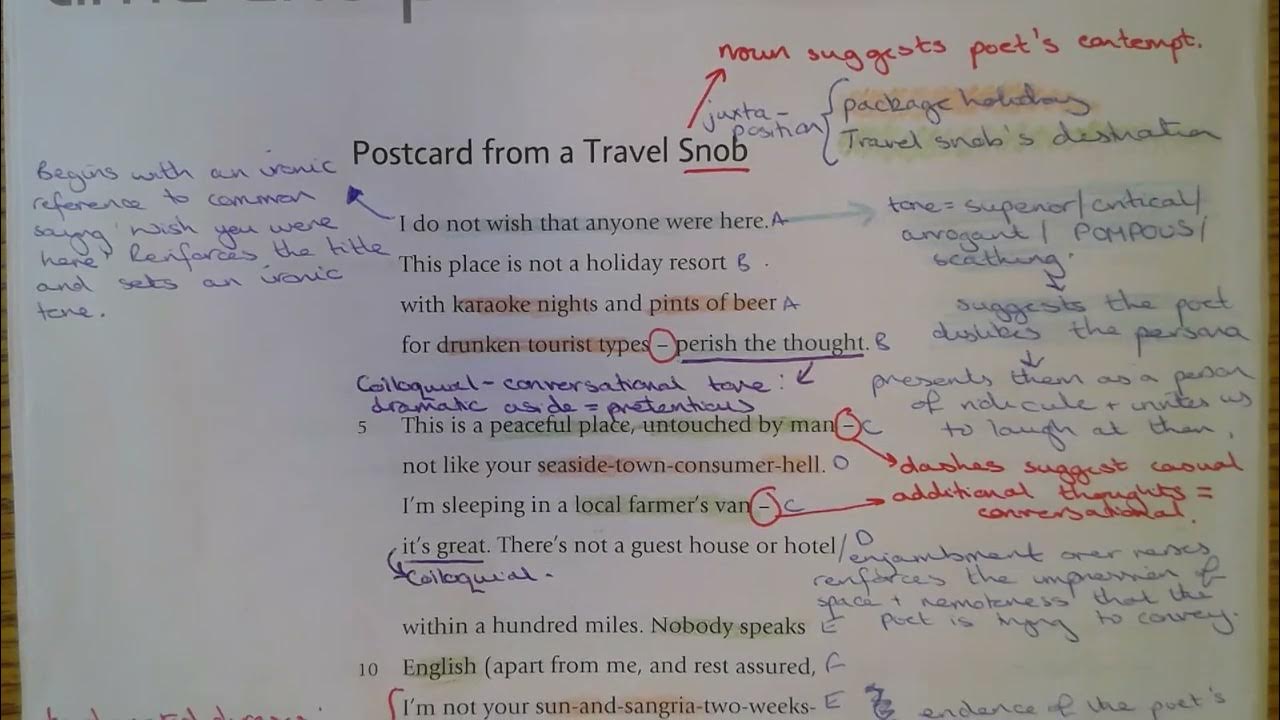 noun suggests poet's contempt.
juxta-
position
package holiday
Travel snob's destination
Postcard from a Travel Snob
Begins with an ironic
reference to common
saying 'wish you were
here' Reinforces the title
and sets an ironic
tone.
I do not wish that anyone were here. A
tone = superior/critical/
arrogant / POMPOUS/
scathing.
This place is not a holiday resort B
with karaoke nights and pints of beer A
suggests the poet
dislikes the persona
for drunken tourist types – perish the thought. B
Colloquial - conversational tone:
dramatic aside = pretentious
presents them as a person
of ridicule + invites us
to laugh at them.
5 This is a peaceful place, untouched by man – C
not like your seaside-town-consumer-hell. D
dashes suggest casual
additional thoughts =
conversational.
I'm sleeping in a local farmer's van – C
it's great. There's not a guest house or hotel / D
Colloquial -
enjambment over verses
reinforces the impression of
space + remoteness that the
poet is trying to convey.
within a hundred miles. Nobody speaks E
10 English (apart from me, and rest assured, F
I'm not your sun-and-sangria-two-weeks- E
evidence of the poet's